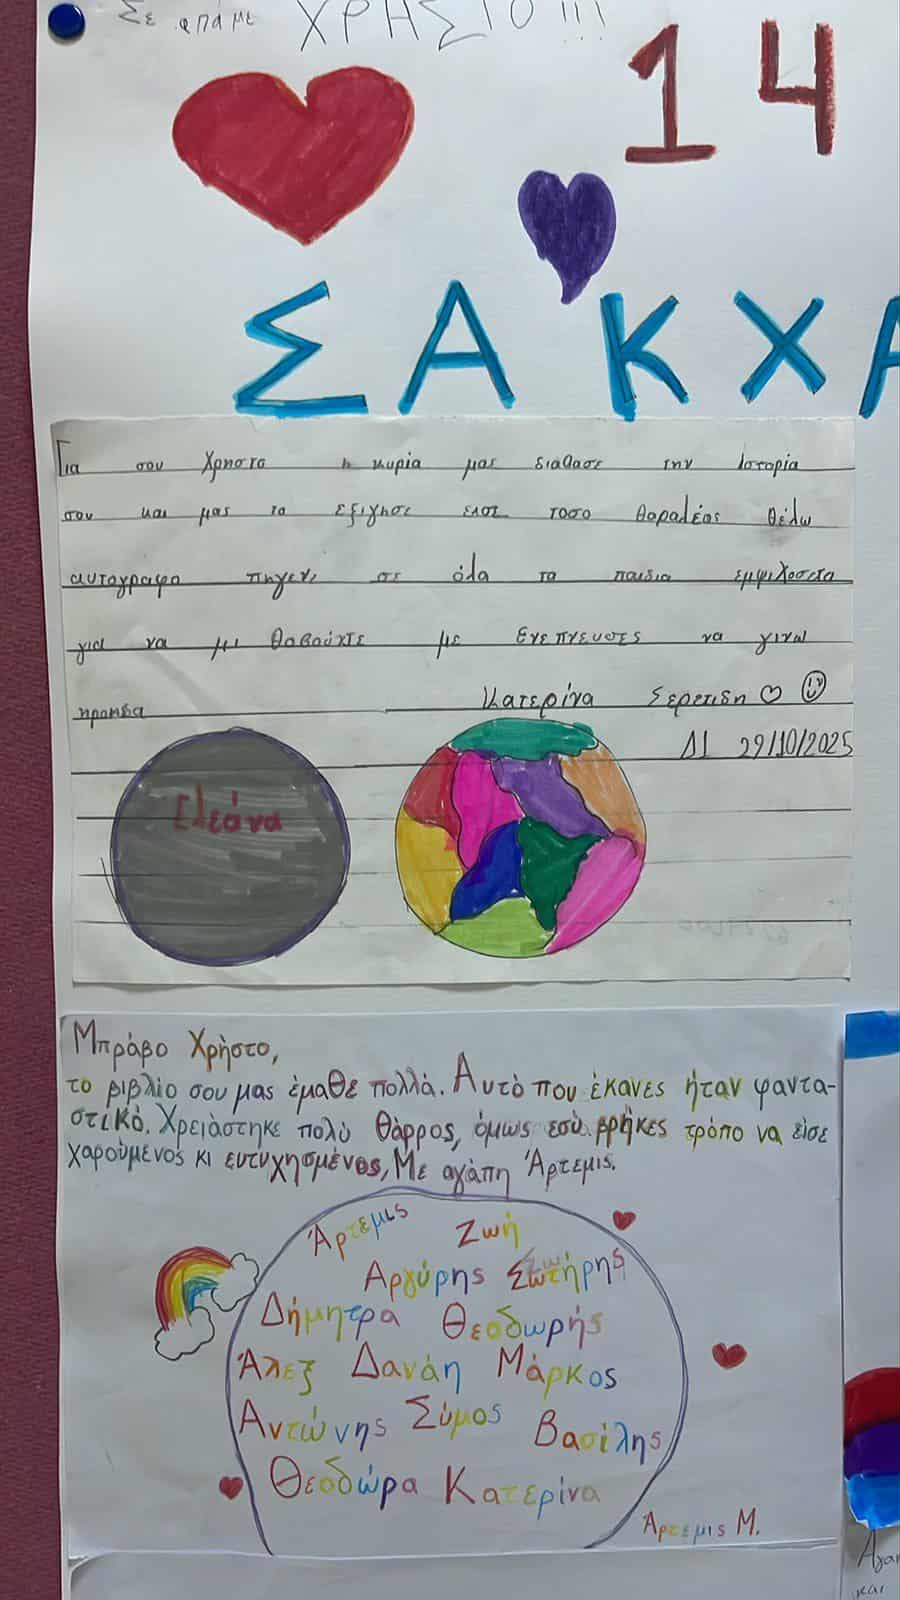 Σε απάμε ΧΡΗΣΤΟ!!!
14
ΣΑΚΧΑ
Για σου Χρηστο η κυρία μας διαθασε την Ιστορία
σου και μας το εξιγησε εισε τοσο θαραλέος θέλω
αυτογραφο πηγενε σε όλα τα παιδια εμψιχοσετα
για να μι θοβούντε με ενεπνευσες να γινω
ηροηδα Κατερίνα Σερετιδη
Δ1 29/10/2025
Ελεάνα
Μπράβο Χρήστο,
το βιβλίο σου μας έμαθε πολλά. Αυτό που έκανες ήταν φαντα-
στικό. Χρειάστηκε πολύ θάρρος, όμως εσύ βρήκες τρόπο να είσε
χαρούμενος κι ευτυχησμένος, Με αγάπη Άρτεμις.
Άρτεμις Ζωή
Αργύρης Σωτήρης
Δήμητρα Θεοδωρής
Άλεξ Δανάη Μάρκος
Αντώνης Σύμος Βασίλης
Θεοδώρα Κατερίνα
Άρτεμις Μ.
και